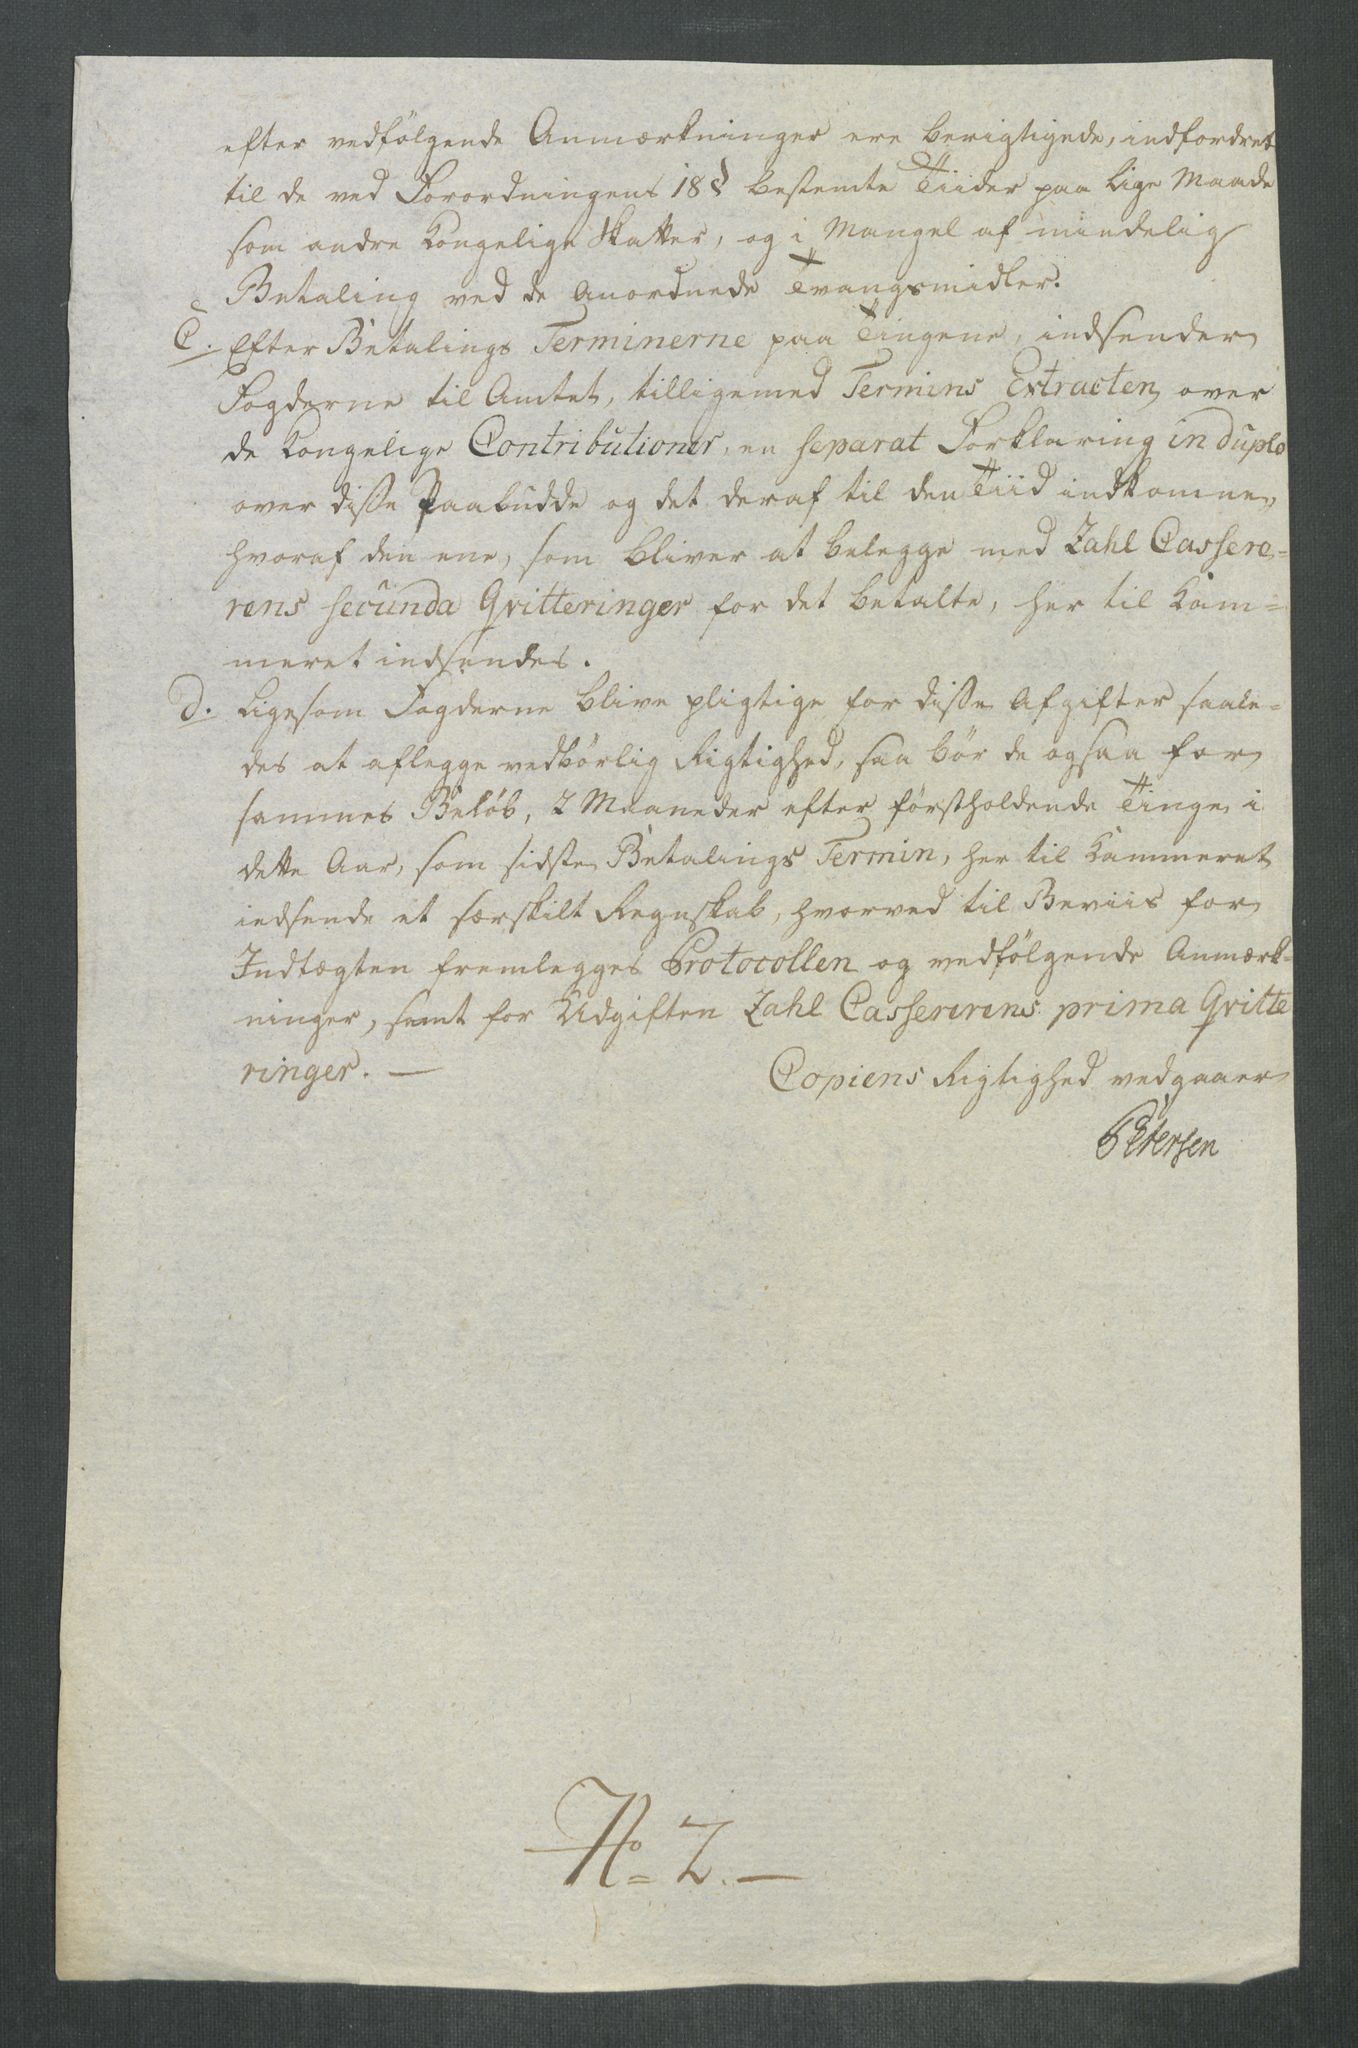 efter vedfölgende Anmærkninger ere berigtigede, indfordret
til de ved Forordningens 18 § bestemte Tiider paa lige Maade
som andre Kongelige Skatter, og i Mangel af mindelig
Betaling ved de anordnede Tvangsmidler.
C. Efter Betalings Terminerne paa Tingene, indsender
Fogderne til Amtet, tilligemed Termins Extracten over
de Kongelige Contributioner, en separat Forklaring in duplo
over disse Paabudde og det deraf til den Tiid indkomne,
hvoraf den ene, som bliver at belegge med Zahl Cassere-
rens secunda Qvitteringer for det betalte, her til Kam-
meret indsendes.
d. Ligesom Fogderne blive pligtige for disse Afgifter saale-
des at aflegge vedbörlig Rigtighed, saa bör de ogsaa for
sammes Belöb, 2 Maaneder efter förstholdende Tinge i
dette Aar, som sidste Betalings Termin, her til Kammeret
indsende et særskilt Regnskab, hvorved til Beviis for
Indtægten fremlegges Protocollen og vedfölgende Anmærk-
ninger, samt for Udgiften Zahl Cassererens prima Qvitte
ringer. —
Copiens Rigtighed vedgaaer
Petersen
No= 2. —